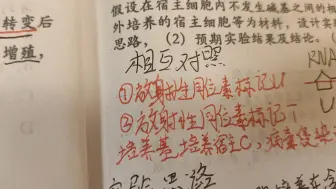 转变后
增殖,
假设在宿主细胞内不发生碱基之间的相
外培养的宿主细胞等为材料,设计实
思路,(2)预期实验结果及结论。(
相互对照
RNA
①放射性同位素标记U
②放射性同位素标记T
U
培养基培养宿主C,病毒侵染
思路